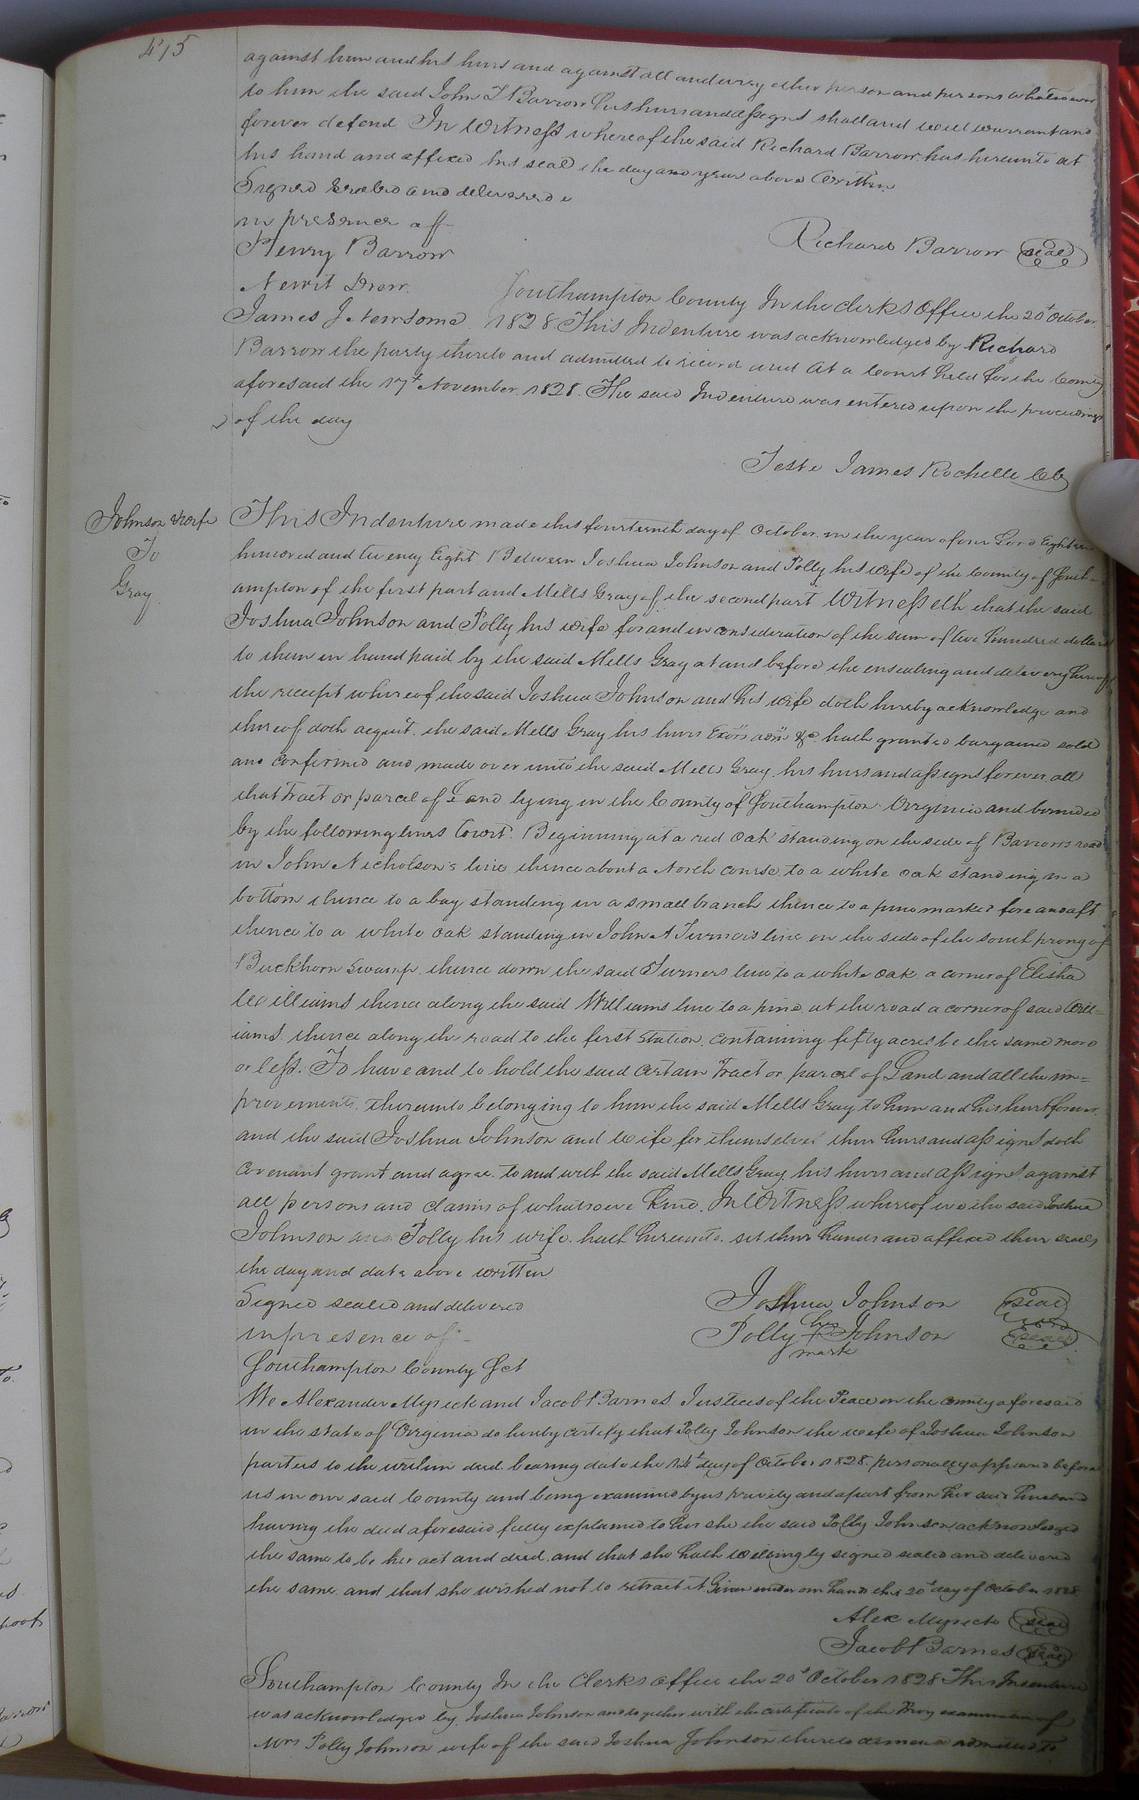 415
against him and his heirs and against all and every other person and persons whatsoever
to him the said John T Barrow his heirs and assigns shall and will warrant and
forever defend In Witness whereof the said Richard Barrow has hereunto set
his hand and affixed his seal the day and year above Written
Signed Sealed and delivered
in presence off
Henry Barrow
Richard Barrow seal
Newit Drew
James J Newsome
Southampton County In the clerks Office the 20t October
1828 This Indenture was acknowledged by Richard
Barrow the party thereto and admitted to record and At a Court held for the County
aforesaid the 17t November 1828. The said Indenture was entered upon the proceedings
of the day
Teste James Rochelle Clk
Johnson & wife
To
Gray
This Indenture made this fourteenth day of October in the year of our Lord Eighteen
hundred and twenty Eight Between Joshua Johnson and Polly his wife of the County of South-
ampton of the first part and Mills Gray of the second part Witnesseth that the said
Joshua Johnson and Polly his wife for and in consideration of the sum of two hundred dollars
to them in hand paid by the said Mills Gray at and before the ensealing and delivery hereof
the receipt whereof the said Joshua Johnson and his wife doth hereby acknowledge and
thereof doth acquit the said Mills Gray his heirs Exors adm &c hath granted bargained sold
and confirmed and made over unto the said Mills Gray his heirs and assigns forever all
that Tract or parcel of Land lying in the County of Southampton Virginia and bounded
by the following lines Towit. Beginning at a red oak standing on the side of Barrows road
in John Nicholson's line thence about a North course to a white oak standing in a
bottom thence to a bay standing in a small branch thence to a pine marked fore and aft
thence to a white oak standing in John A Turner's line on the side of the south prong of
Buckhorn Swamp thence down the said Turners line to a white oak a corner of Elisha
Williams thence along the said Williams line to a pine at the road a corner of said Will-
iams thence along the road to the first station containing fifty acres be the same more
or less. To have and to hold the said certain Tract or parcel of Land and all the im-
provements thereunto belonging to him the said Mills Gray to him and his heirs forever
and the said Joshua Johnson and wife for themselves their heirs and assigns doth
covenant grant and agree to and with the said Mills Gray his heirs and assigns against
all persons and claims of whatsoever kind. In Witness whereof we the said Joshua
Johnson and Polly his wife hath hereunto set their hands and affixed their seals
the day and date above written
Signed sealed and delivered
in presence of
Joshua Johnson seal
her
Polly + Johnson seal
mark
Southampton County Sct
We Alexander Myrick and Jacob Barnes Justices of the Peace in the county aforesaid
in the state of Virginia do hereby certify that Polly Johnson the wife of Joshua Johnson
parties to the within deed bearing date the 14t day of October 1828 personally appeared before
us in our said County and being examined by us privily and apart from her said husband
having the deed aforesaid fully explained to her she the said Polly Johnson acknowledged
the same to be her act and deed and that she hath willingly signed sealed and delivered
the same and that she wished not to retract it Given under our hands this 20t day of October 1828
Alex Myrick seal
Jacob Barnes seal
Southampton County In the Clerks Office the 20t October 1828 This Indenture
was acknowledged by Joshua Johnson and together with the certificate of the Privy examination of
Mrs Polly Johnson wife of the said Joshua Johnson thereto annexed admitted to